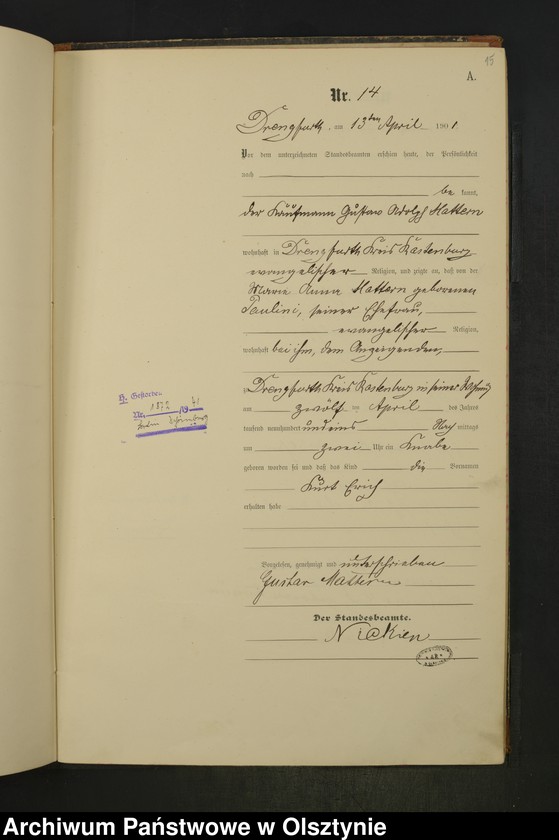 15
A.
Nr. 14
Drengfurth, am 13ten April 1901
Vor dem unterzeichneten Standesbeamten erschien heute, der Persönlichkeit
nach
be kannt,
der Kaufmann Gustav Adolph Mattern
wohnhaft in Drengfurth Kreis Rastenburg
evangelischer Religion, und zeigte an, daß von der
Marie Anna Mattern geborenen
Paulini, seiner Ehefrau,
evangelischer Religion,
wohnhaft bei ihm, dem Anzeigenden,
zu Drengfurth Kreis Rastenburg in seiner Wohnung
am zwölf ten April des Jahres
tausend neunhundert und eins Nach mittags
um zwei Uhr ein Knabe
geboren worden sei und daß das Kind die Vornamen
Kurt Erich
erhalten habe
Vorgelesen, genehmigt und unterschrieben
Gustav Mattern
Der Standesbeamte.
Nickien
H. Gestorben
Nr. 1572 /19 41
Archiwum Państwowe w Olsztynie